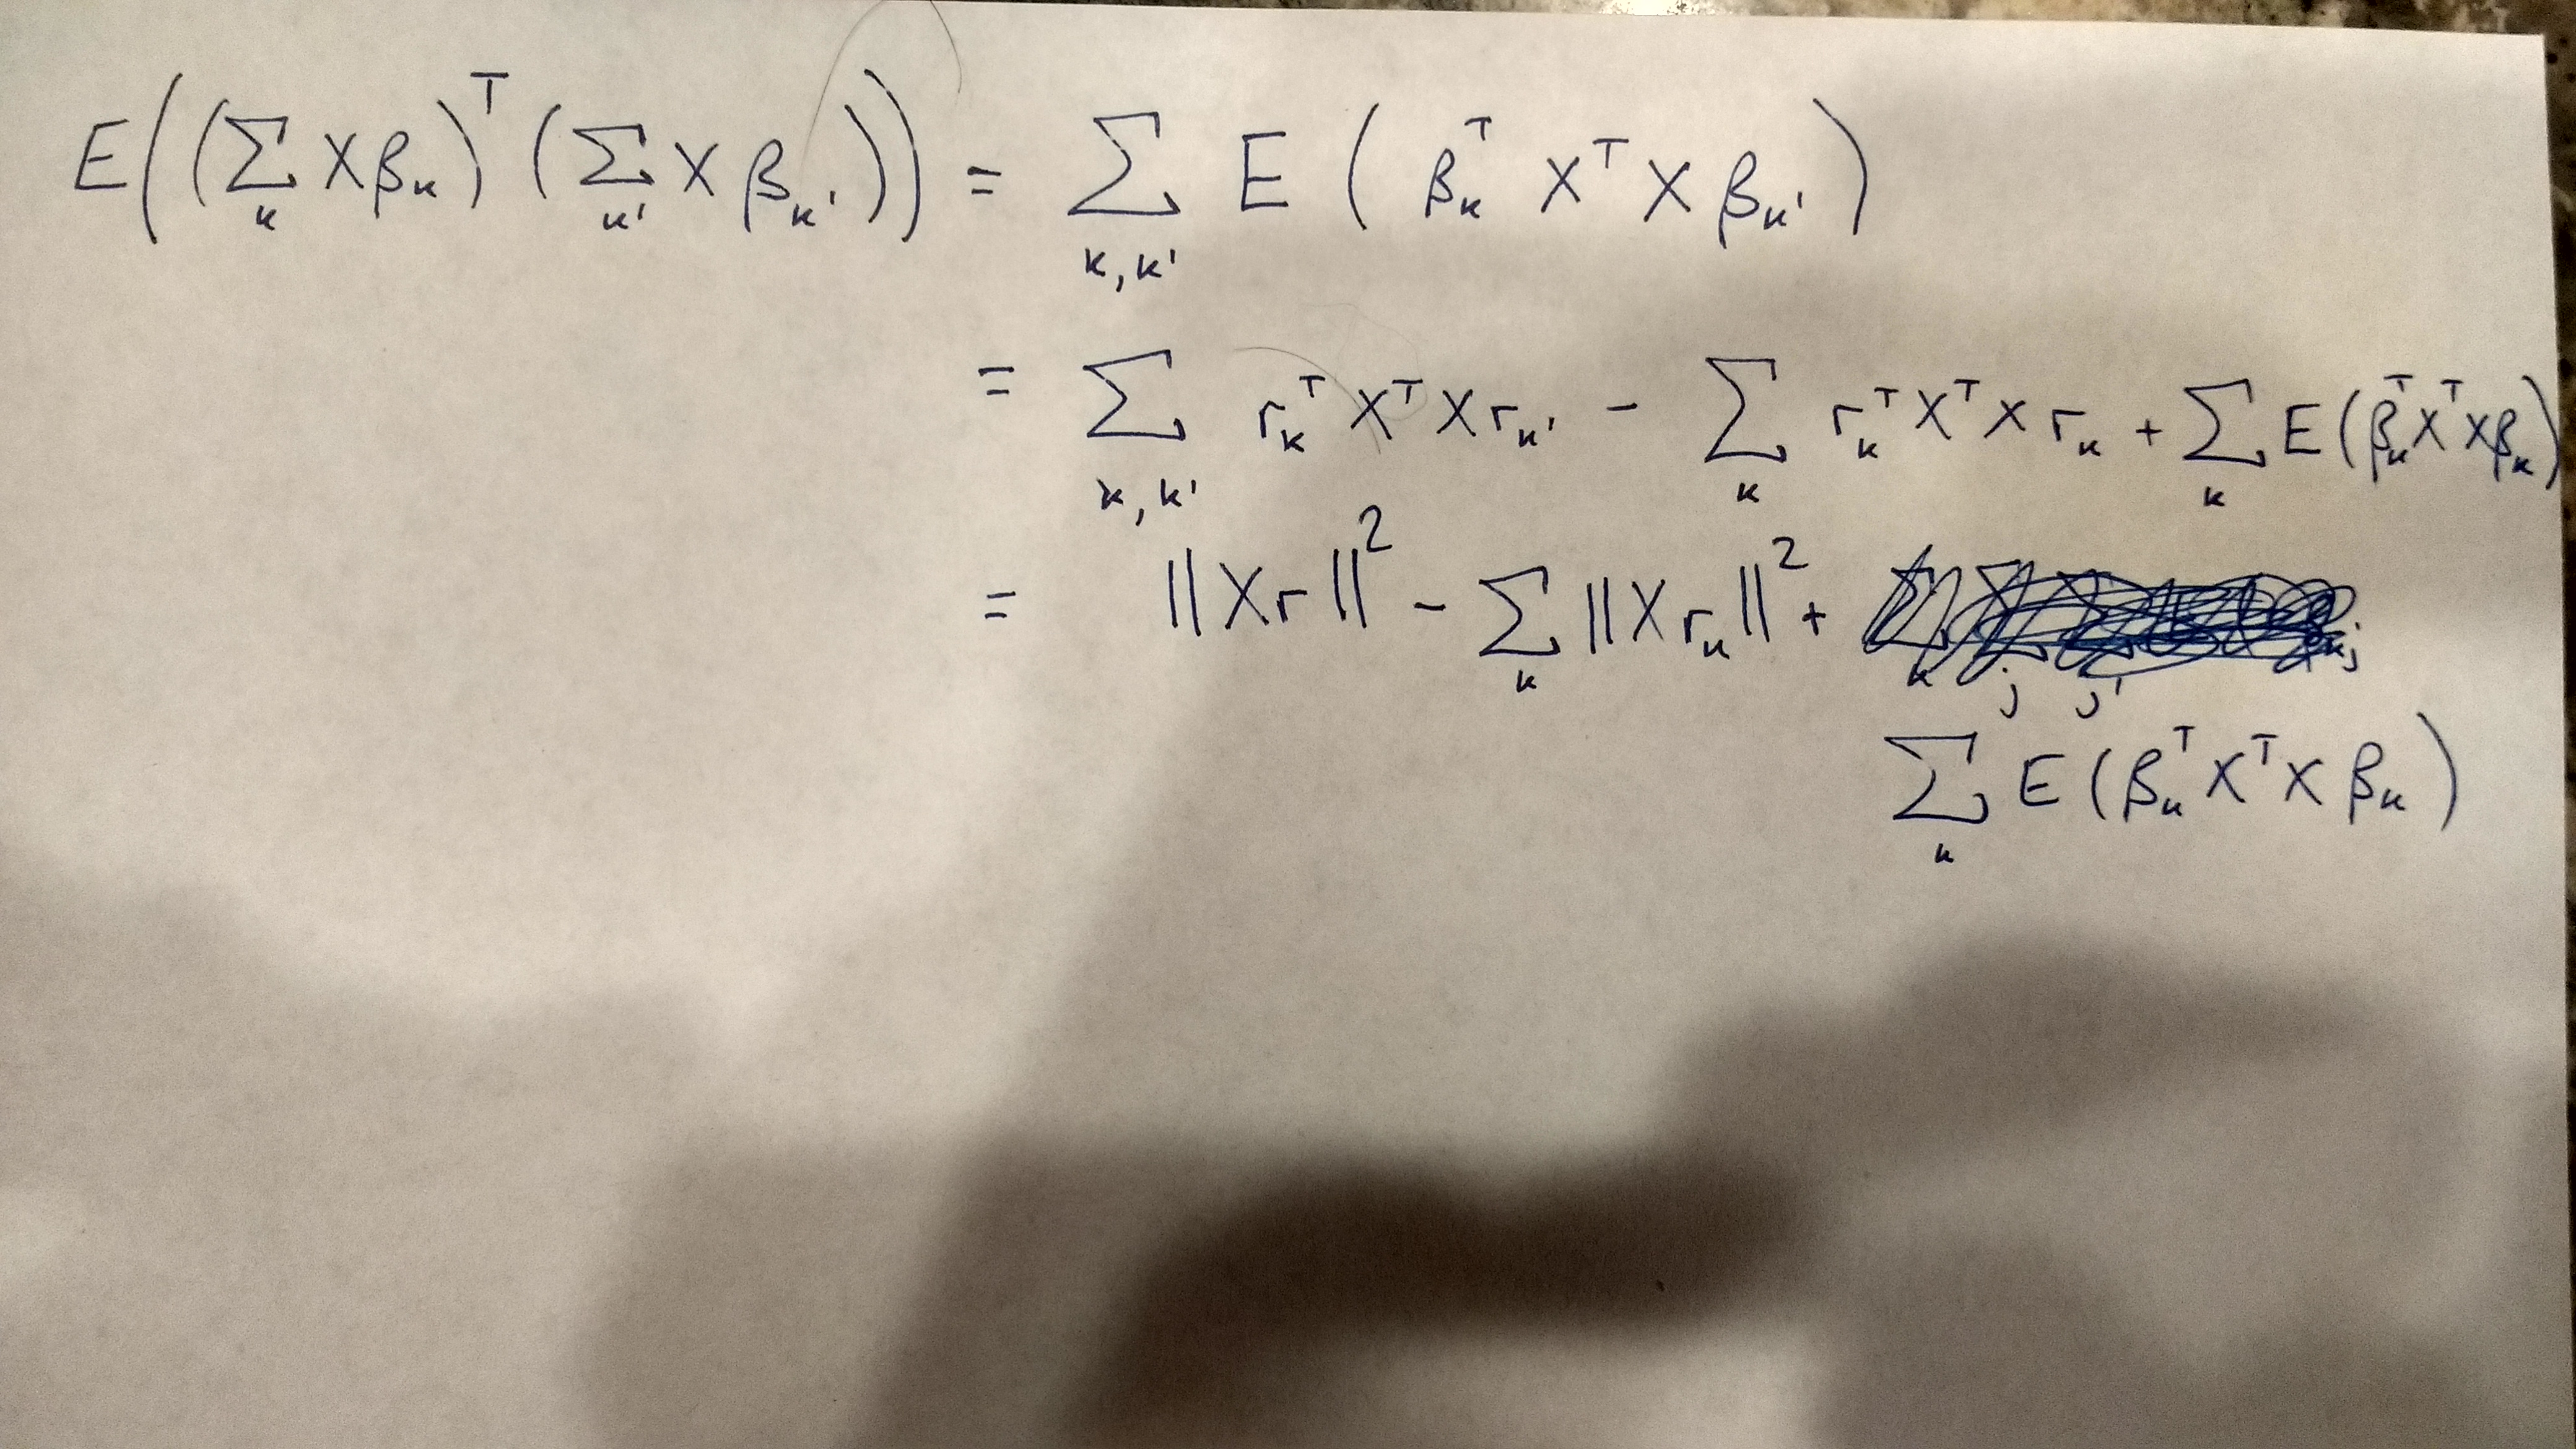 E((∑_k Xβ_k)^T (∑_k' Xβ_k')) = ∑_{k,k'} E(β_k^T X^T X β_k')
= ∑_{k,k'} r_k^T X^T X r_k' - ∑_k r_k^T X^T X r_k + ∑_k E(β_k^T X^T X β_k)
= ||Xr||^2 - ∑_k ||Xr_k||^2 +
∑_k E(β_k^T X^T X β_k)